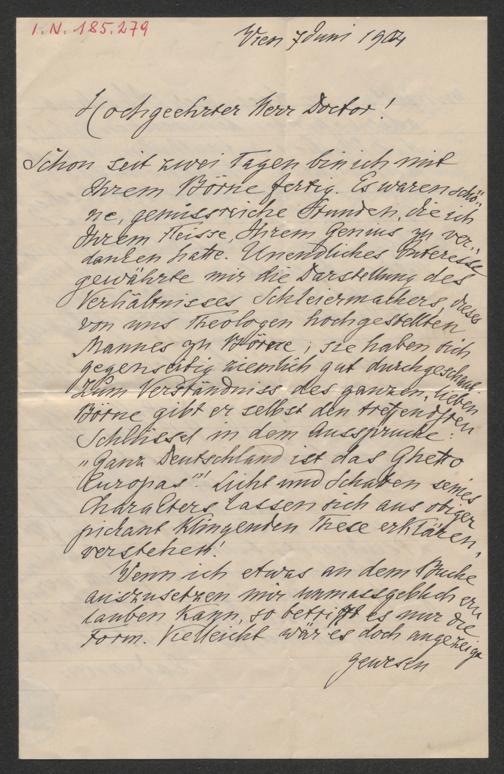 I.N. 185.279
Wien 7 Juni 1904
Hochgeehrter Herr Doctor!
Schon seit zwei Tagen bin ich mit
Ihrem Börne fertig. Es waren schö-
ne, genussreiche Stunden, die ich
Ihrem Fleisse, Ihrem Genius zu ver-
danken hatte. Unendliches Interesse
gewährte mir die Darstellung des
Verhältnisses Schleiermachers, dieses
von uns Theologen hochgestellten
Mannes zu Börne; sie haben sich
gegenseitig ziemlich gut durchgeschaut.
Zum Verständniss des ganzen, lieben
Börne gibt er selbst den treffendsten
Schlüssel in dem Ausspruche:
"Ganz Deutschland ist das Ghetto
Europas"! Licht und Schatten seines
Charakters lassen sich aus obiger
pickant klingenden These erklären,
verstehen!
Wenn ich etwas an dem Buche
auszusetzen mir unmassgeblich er-
lauben kann, so betrifft es nur die
Form. Vielleicht wär es doch angezeigt
gewesen